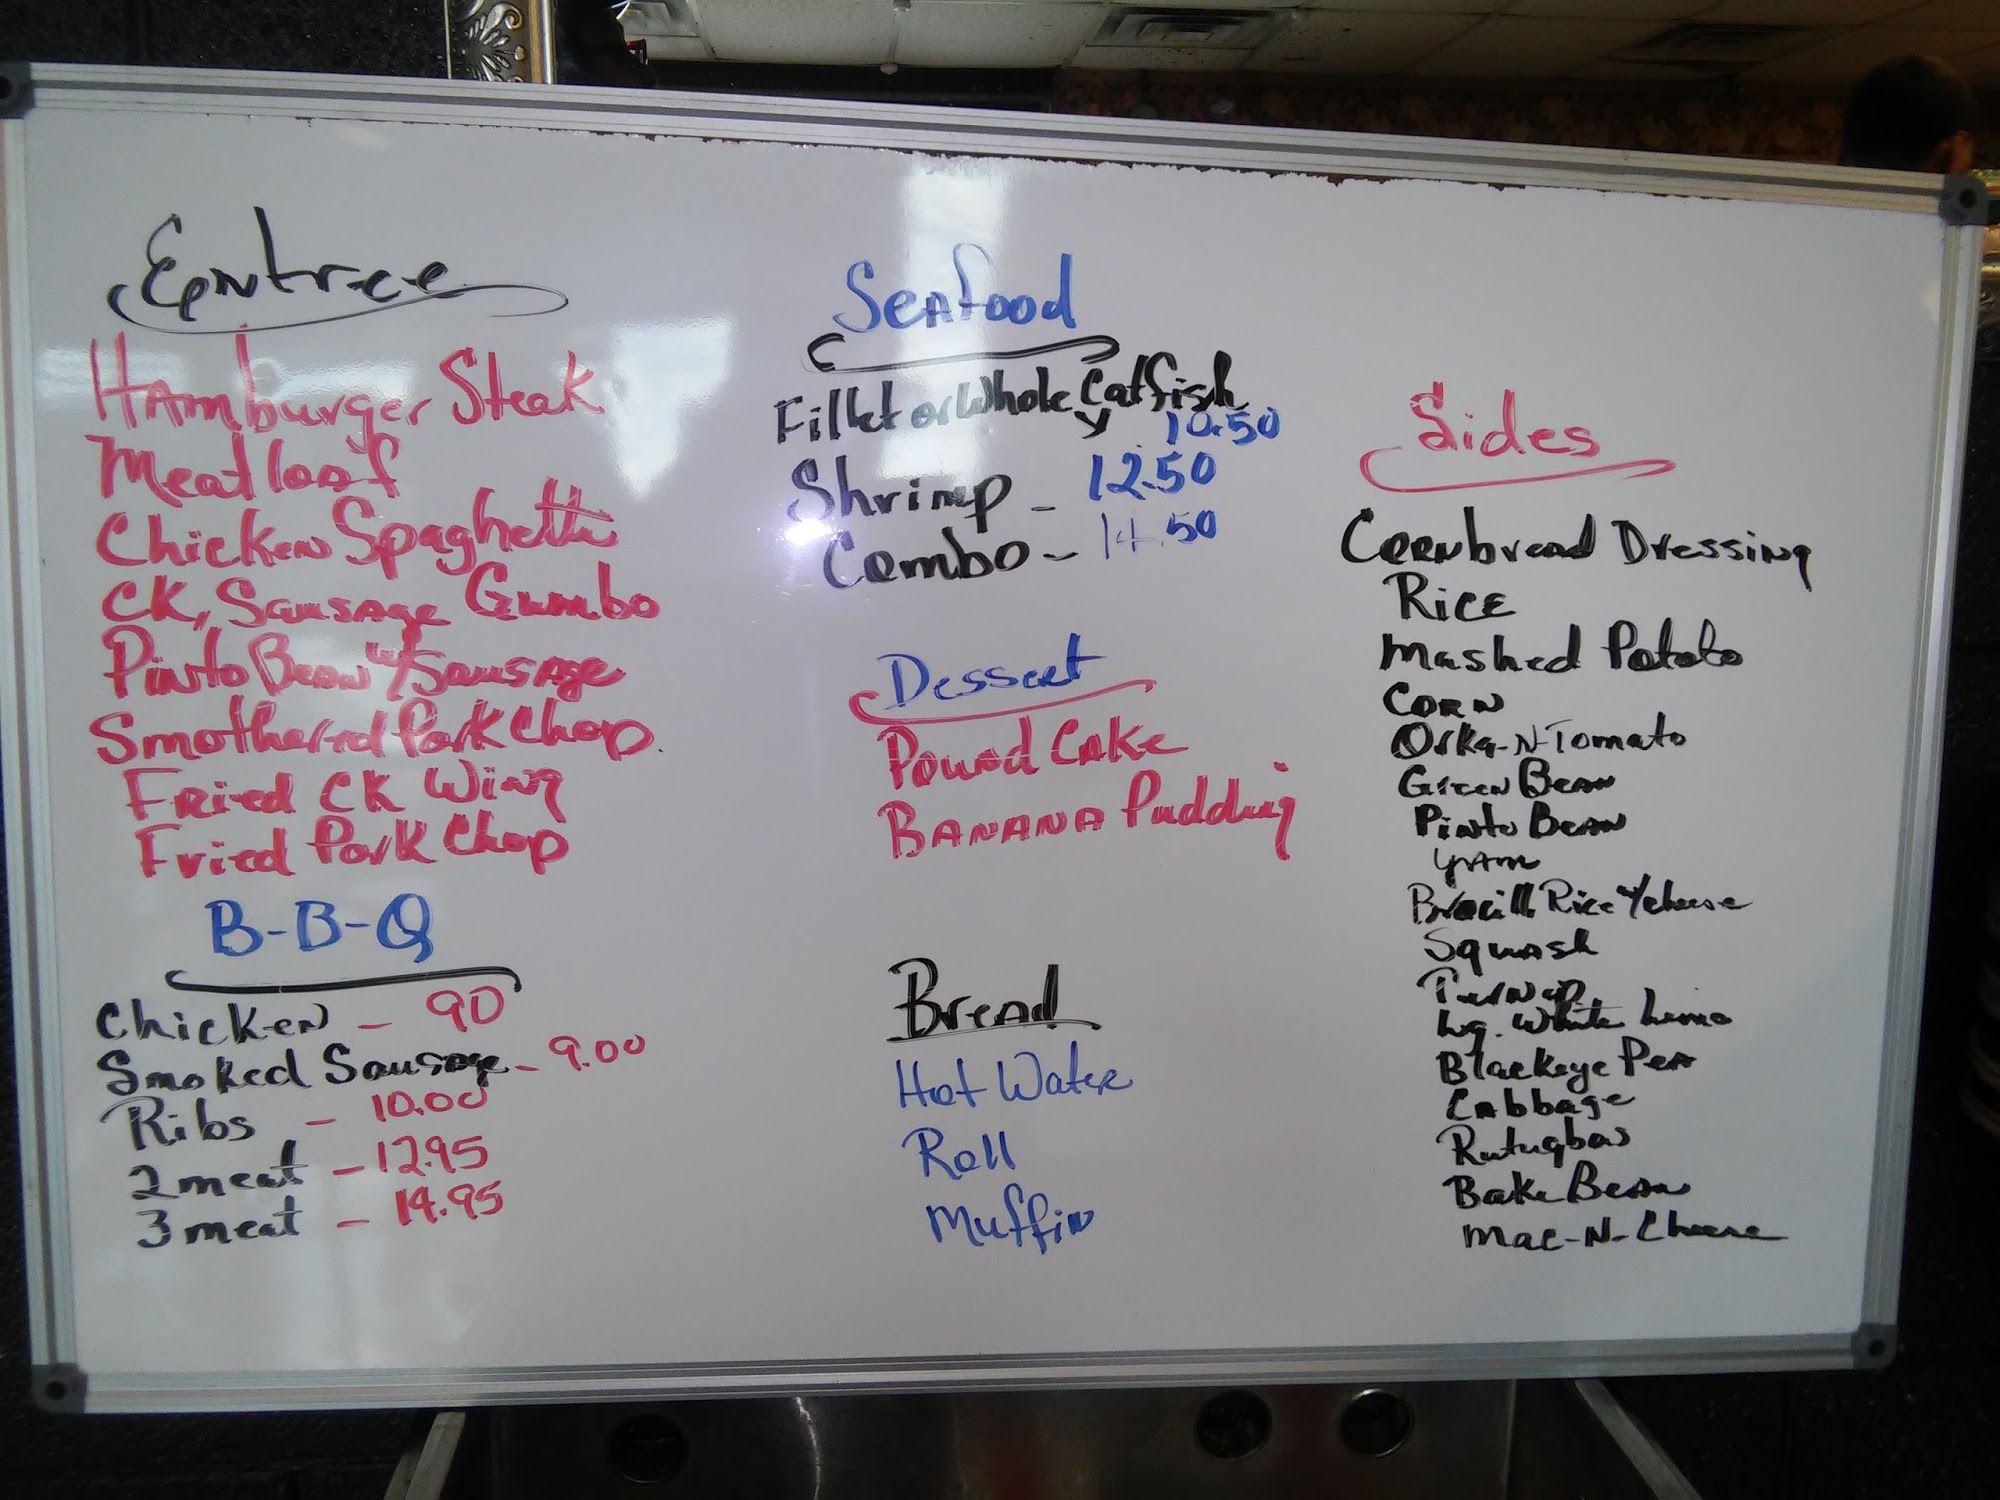 Entree
Hamburger Steak
Meatloaf
Chicken Spaghetti
CK, Sausage Gumbo
Pinto Bean w/Sausage
Smothered Pork Chop
Fried CK Wing
Fried Pork Chop
B-B-Q
Chicken - 90
Smoked Sausage - 9.00
Ribs - 10.00
2 meat - 12.95
3 meat - 14.95
Seafood
Fillet or Whole Catfish
10.50
Shrimp - 12.50
Combo - 14.50
Dessert
Pound Cake
Banana Pudding
Bread
Hot Water
Roll
Muffin
Sides
Cornbread Dressing
Rice
Mashed Potato
Corn
Orka-N-Tomato
Green Bean
Pinto Bean
Yam
Rice w/cheese
Squash
Turnup
Lg. White Lima
Blackeye Pea
Cabbage
Rutugbas
Bake Bean
Mac-N-Cheese